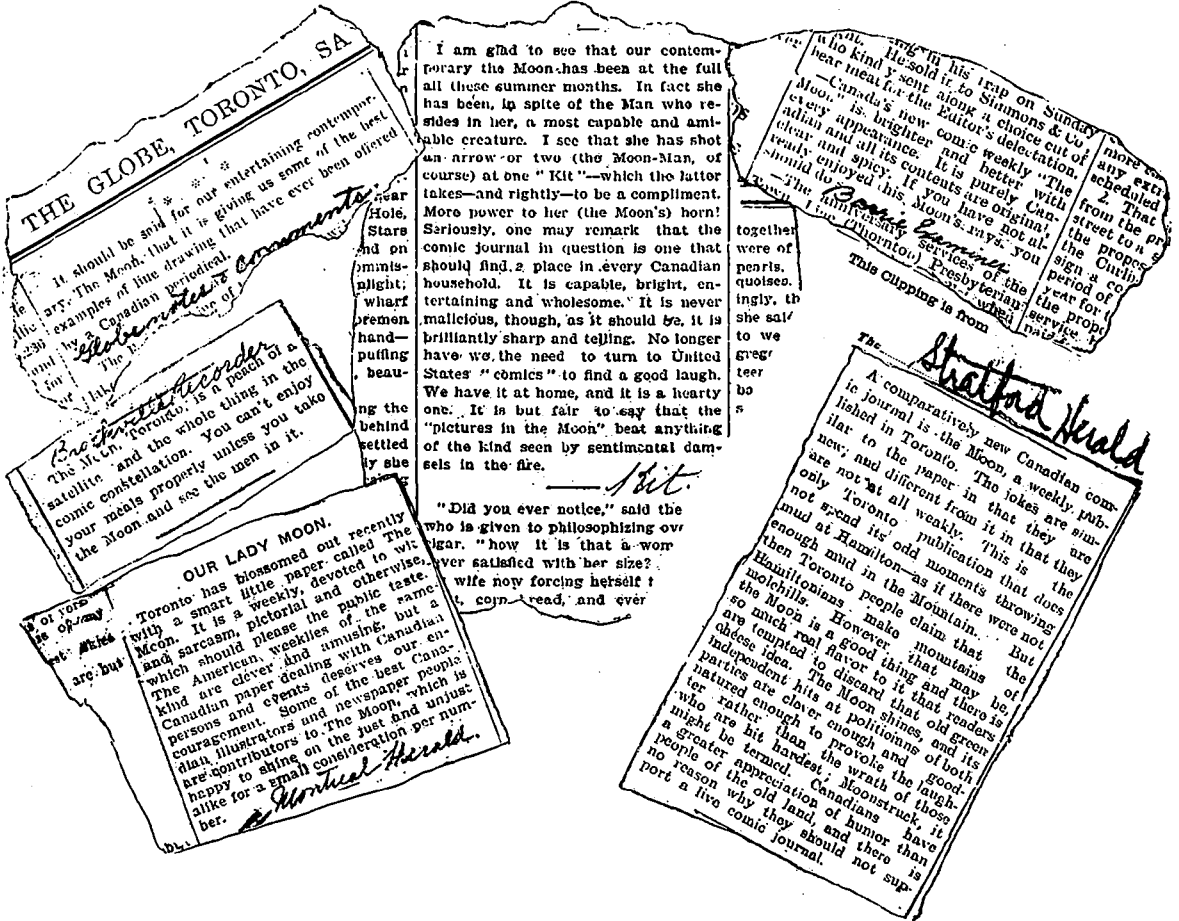 THE GLOBE, TORONTO, SA
It should be said for our entertaining contempor-
ary, The Moon, that it is giving us some of the best
examples of line drawing that have ever been offered
by a Canadian periodical.
Globe notes & comments
The Moon, Toronto, is a peach of a
satellite and the whole thing in the
comic constellation. You can't enjoy
your meals properly unless you take
the Moon and see the men in it.
Brockville Recorder
OUR LADY MOON.
Toronto has blossomed out recently
with a smart little paper called The
Moon. It is a weekly, devoted to wit
and sarcasm, pictorial and otherwise,
which should please the public taste.
The American weeklies of the same
kind are clever and amusing, but a
Canadian paper dealing with Canadian
persons and events deserves our en-
couragement. Some of the best Cana-
dian illustrators and newspaper people
are contributors to The Moon, which is
happy to shine on the just and unjust
alike for a small consideration per num-
ber.
Montreal Herald.
are but
near
Hole,
Stars
nd on
ommis-
nlight;
wharf
oremen
hand—
puffing
beau-
ng the
behind
settled
ly she
I am glad to see that our contem-
porary the Moon has been at the full
all these summer months. In fact she
has been, in spite of the Man who re-
sides in her, a most capable and ami-
able creature. I see that she has shot
an arrow or two (the Moon-Man, of
course) at one "Kit"—which the latter
takes—and rightly—to be a compliment.
More power to her (the Moon's) horn!
Seriously, one may remark that the
comic journal in question is one that
should find a place in every Canadian
household. It is capable, bright, en-
tertaining and wholesome. It is never
malicious, though, as it should be, it is
brilliantly sharp and telling. No longer
have we the need to turn to United
States "comics" to find a good laugh.
We have it at home, and it is a hearty
one. It is but fair to say that the
"pictures in the Moon" beat anything
of the kind seen by sentimental dam-
sels in the fire.
Kit.
"Did you ever notice," said the
who is given to philosophizing ov
igar, "how it is that a wom
ever satisfied with her size?
wife now forcing herself t
corn bread, and ever
together
were of
pearls.
quoises.
ingly, th
she said
to we
greg
teer
in his trap on Sunday
He sold it to Simmons & Co
who kindly sent along a choice cut of
bear meat for the Editor's delectation.
—Canada's new comic weekly "The
Moon" is brighter and better with
every appearance. It is purely Can-
adian and all its contents are original,
clear and spicy. If you have not al-
ready enjoyed this Moon's rays, you
should do
Barrie Examiner
—The anniversary services of the
(Thornton) Presbyterian
more
any extr
scheduled
2. That
from the pr
the propos
street to a
sign a co
the Curlin
period of
year for
the prop
service
This Clipping is from
The Stratford Herald
A comparatively new Canadian com-
ic journal is the Moon, a weekly, pub-
lished in Toronto. The jokes are sim-
ilar to the paper in that they are
new, and different from it in that they
are not at all weakly. This is the
only Toronto publication that does
not spend its odd moments throwing
mud at Hamilton—as if there were not
enough mud in the Mountain. But
then Toronto people claim that the
Hamiltonians make mountains of
molehills. However, that may be,
the Moon is a good thing and there is
so much real flavor to it that readers
are tempted to discard that old green
cheese idea. The Moon shines, and its
independent hits at politicians of both
parties are clever enough and good-
natured enough to provoke the laugh-
ter rather than the wrath of those
who are hit hardest; Moonstruck, it
might be termed. Canadians have
a greater appreciation of humor than
people of the old land, and there is
no reason why they should not sup-
port a live comic journal.